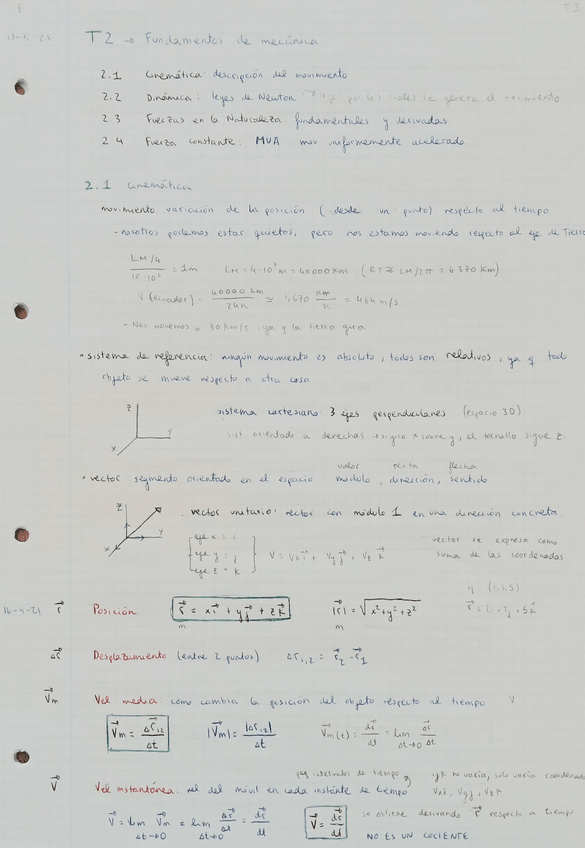 T3
T2 → Fundamentos de mecánica
2.1 Cinemática: descripción del movimiento
2.2 Dinámica: leyes de Newton por las cuales se genera el movimiento
2.3 Fuerzas en la Naturaleza: fundamentales y derivadas
2.4 Fuerza constante: MUA mov uniformemente acelerado
2.1 Cinemática
movimiento: variación de la posición (desde un punto) respecto al tiempo
- nosotros podemos estar quietos, pero nos estamos moviendo respecto al eje de Tierra
LM/4 / 10·10⁶ = 1m LM = 4·10⁷m = 40000 Km (RT ≅ LM/2π = 6.370 Km)
V (ecuador) = 40000 Km / 24h ≅ 1,670 Km/h = 464 m/s
- Nos movemos a 30 Km/s ya q la tierra gira
• sistema de referencia: ningún movimiento es absoluto, todos son relativos, ya q todo
objeto se mueve respecto a otra cosa
z
y
x
sistema cartesiano: 3 ejes perpendiculares (espacio 3D)
sist orientado a derechas → giro x sobre y, el tornillo sigue z
valor recta flecha
• vector: segmento orientado en el espacio: módulo, dirección, sentido
z
y
x
vector unitario: vector con módulo 1 en una dirección concreta
eje x = i
eje y = j
eje z = k
V = Vx i + Vy j + Vz k
vector se expresa como
suma de las coordenadas
16-4-21 r Posición r = x i + y j + z k |r| = √x²+y²+z²
m m
Δr Desplazamiento (entre 2 puntos) Δr₁,₂ = r₂ - r₁
Vm Vel media: como cambia la posición del objeto respecto al tiempo V
Vm = Δr₁₂ / Δt |Vm| = |Δr₁,₂| / Δt Vm(t) = dr/dt = lim Δt→0 Δr/Δt
V Vel instantánea: vel del móvil en cada instante de tiempo
ijk no varía, solo varía coordenadas
Vxi, Vyj, Vzk
V = lim Δt→0 Vm = lim Δt→0 Δr/Δt = dr/dt V = dr/dt
se obtiene derivando r respecto a tiempo
NO ES UN COCIENTE